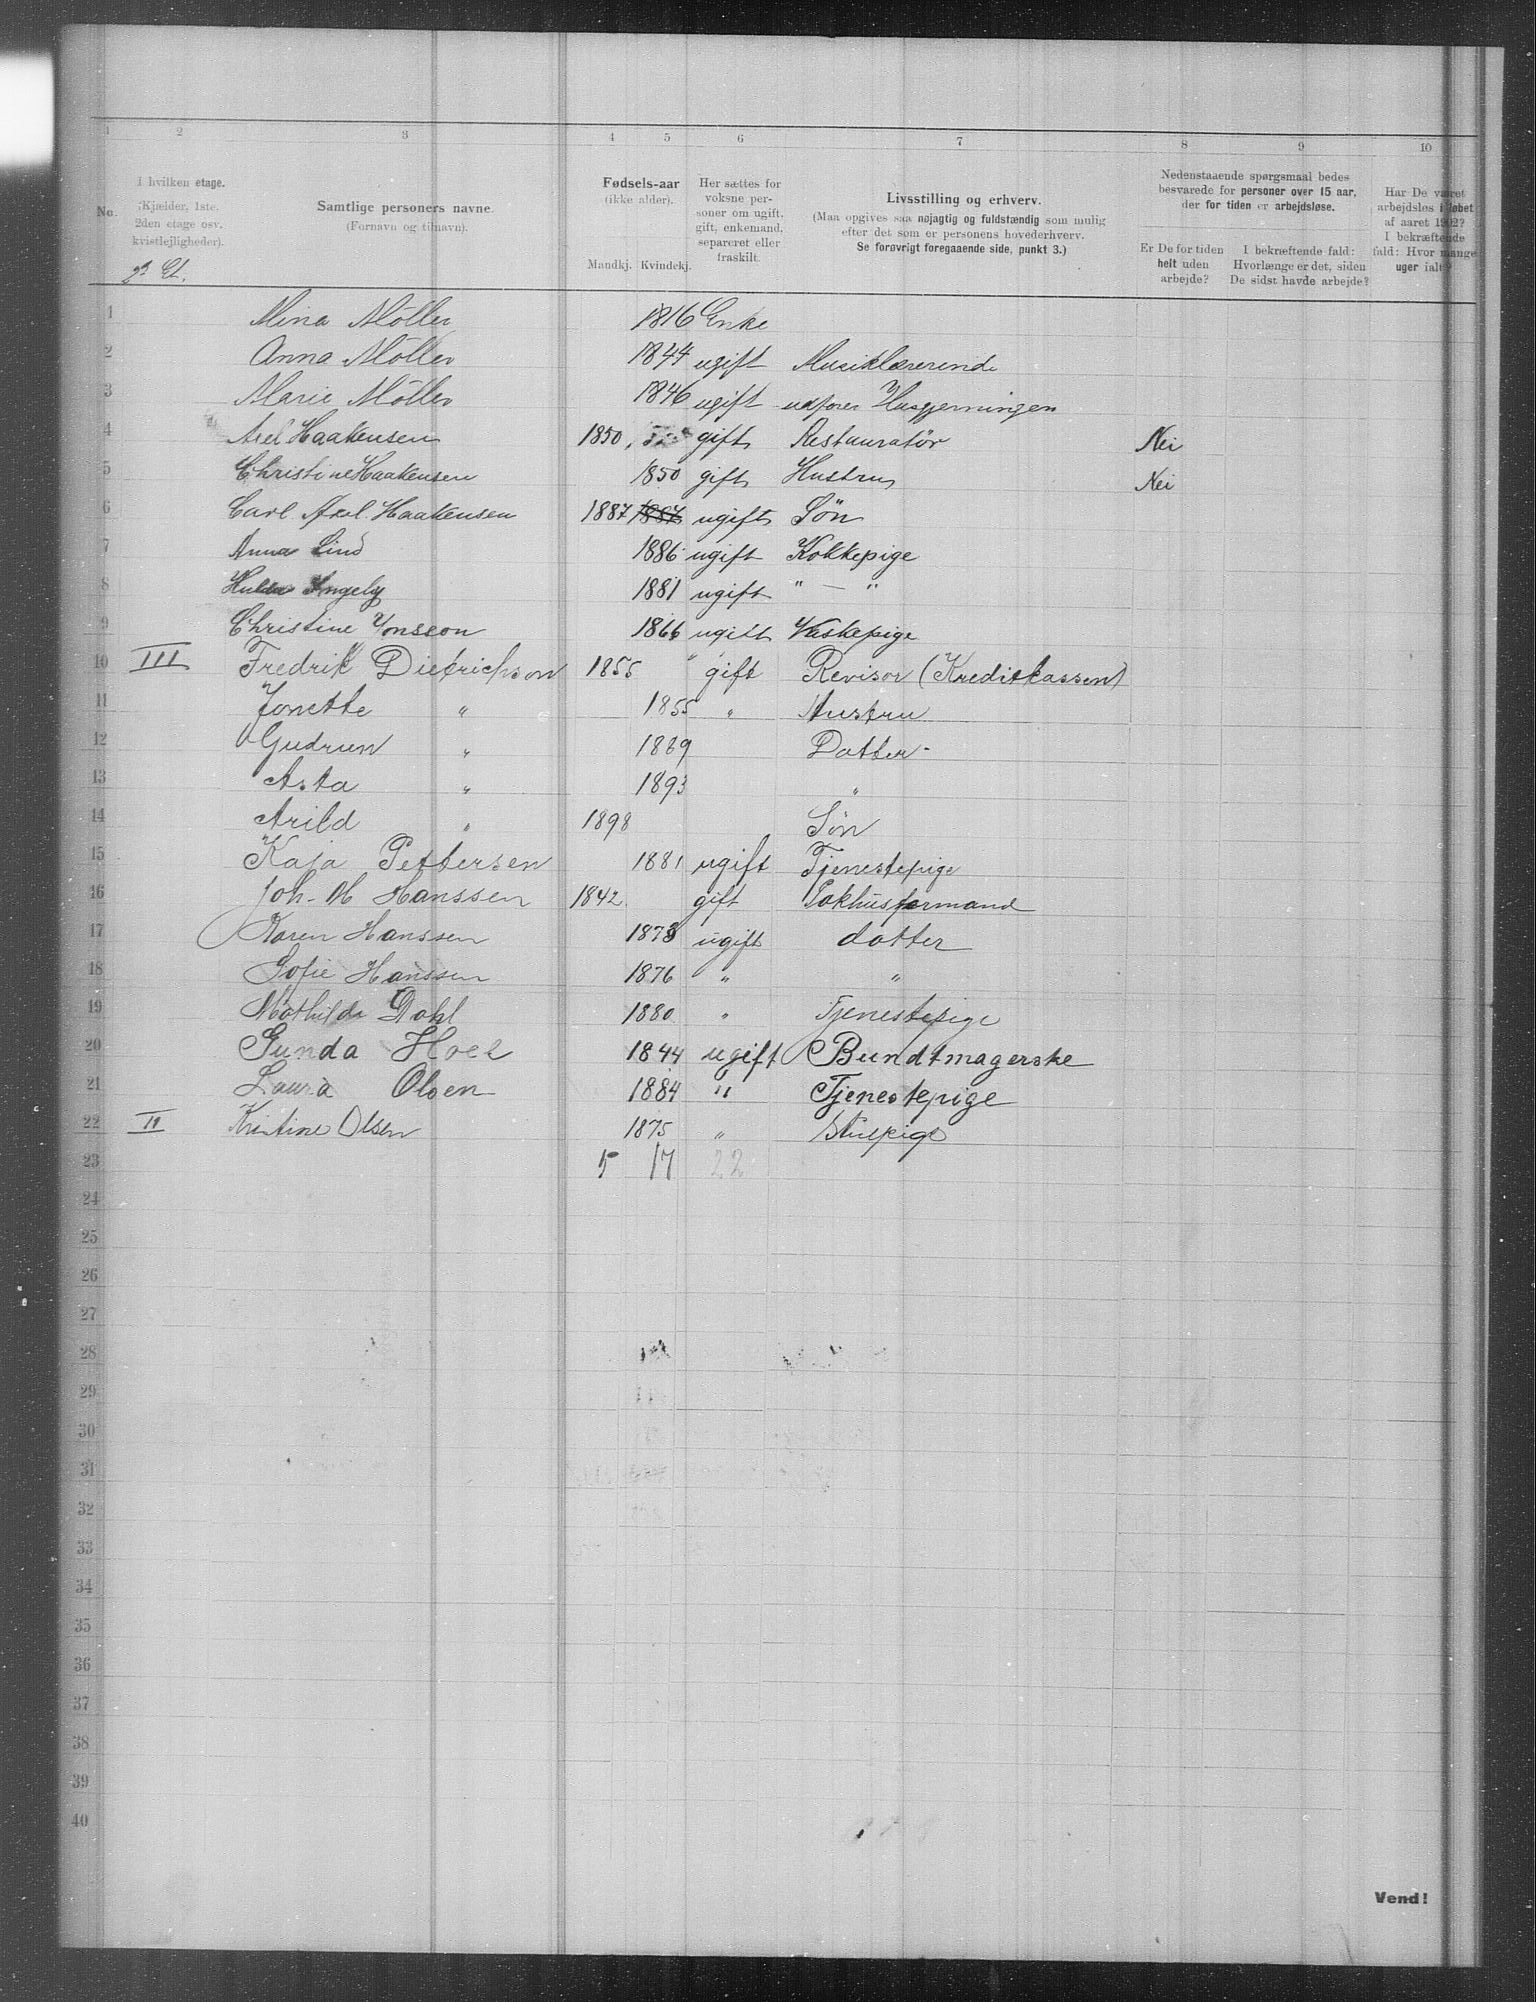 1 2 3 4 5 6 7 8 9 10
No.
I hvilken etage.
(Kjælder, 1ste.
2den etage osv.
kvistlejligheder).
Samtlige personers navne.
(Fornavn og tilnavn).
Fødsels-aar
(ikke alder).
Mandkj. Kvindekj.
Her sættes for
voksne per-
soner om ugift.
gift, enkemand.
separeret eller
fraskilt.
Livsstilling og erhverv.
(Maa opgives saa nøjagtig og fuldstændig som mulig
efter det som er personens hovederhverv.
Se forøvrigt foregaaende side, punkt 3.)
Nedenstaaende spørgsmaal bedes
besvarede for personer over 15 aar,
der for tiden er arbejdsløse.
Er De for tiden
helt uden
arbejde?
I bekræftende fald:
Hvorlænge er det, siden
De sidst havde arbejde?
Har De været
arbejdsløs i løbet
af aaret 1902?
I bekræftende
fald: Hvor mange
uger ialt?
2den Et.
1 Mina Møller 1816 Enke
2 Anna Møller 1844 ugift Musiklærerinde
3 Marie Møller 1846 ugift udfører Husgjerningen
4 Axel Haakensen 1850 gift Restauratör Nei
5 Christine Haakensen 1850 gift Hustru Nei
6 Carl Axel Haakensen 1887 1887 ugift Søn
7 Anna Lind 1886 ugift Kokkepige
8 Angely 1881 ugift " — "
9 Christine Jonsson 1866 ugift Vaskepige
10 III Fredrik Dietrichson 1855 " gift Revisor (Kreditkassen)
11 Jonette " 1855 " Hustru
12 Gudrun " 1889 Datter
13 Asta " 1893 "
14 Arild " 1898 Søn
15 Kaja Pettersen 1881 ugift Tjenestepige
16 Joh. M Hanssen 1842 gift Pakhusformand
17 Karen Hanssen 1873 ugift dotter
18 Sofie Hanssen 1876 " "
19 Mathilde Dahl 1880 " Tjenestepige
20 Gunda Hoel 1844 ugift Bundtmagerske
21 Laura Olsen 1884 " Tjenestepige
22 IV Kristine Olsen 1875 " Stuepige
23 5 17 22
24
25
26
27
28
29
30
31
32
33
34
35
36
37
38
39
40
Vend!